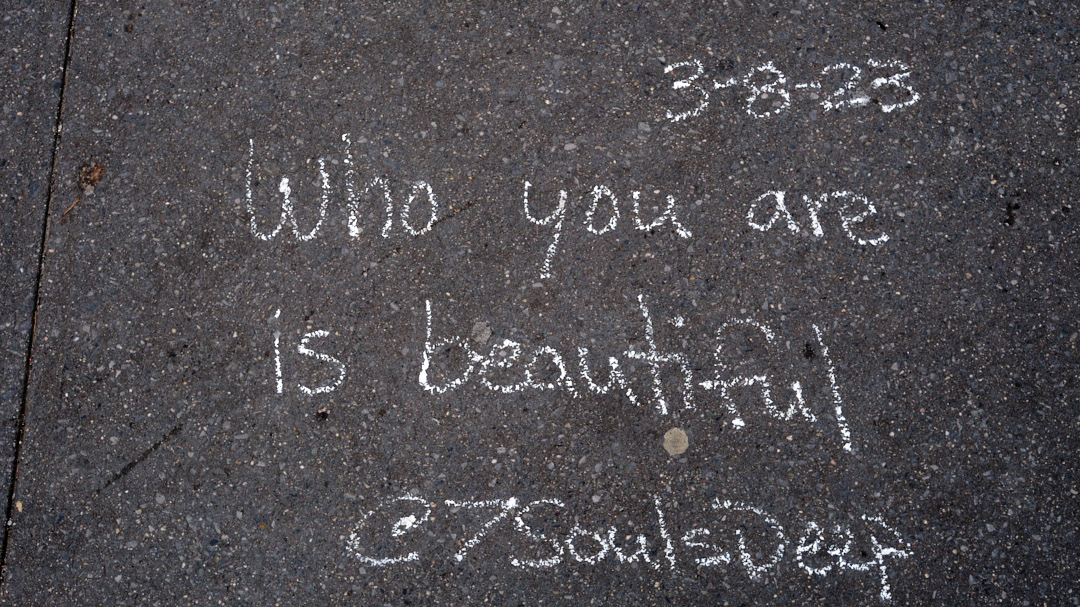 3-8-23
Who you are
is beautiful
@7SoulsDeep